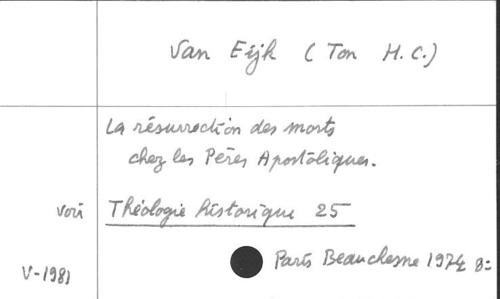 Van Eijk (Ton H.C.)
La résurrection des morts
chez les Pères Apostoliques.
voir Théologie historique 25
Paris Beauchesne 1974 8º
V-1981